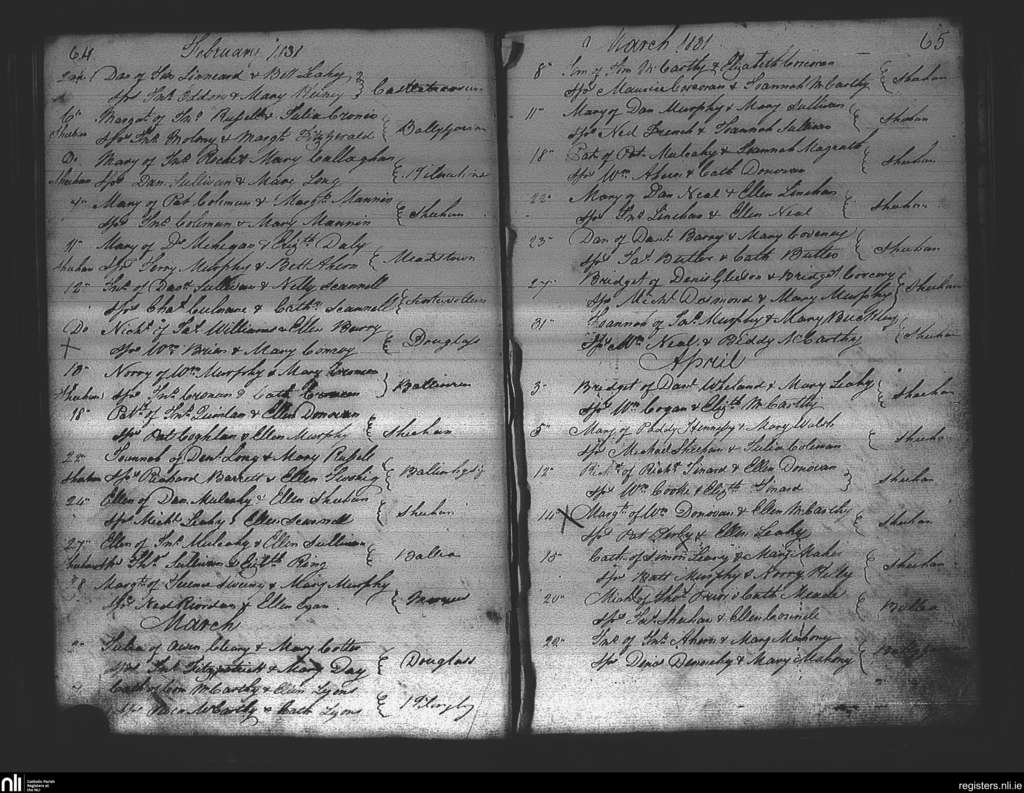 64 February 1831
2nd Dan of Jas Linneard & Bell Leahy
Sprs Jas & Mary
6" Margt of Jno Russell & Julia Cronin
Sheehan Sprs Thos Molony & Margt Fitzgerald
Do Mary of Jno Roche & Mary Callaghan
Sheehan Sprs Dan Sullivan & Mary Long
Mary of Pat Coliman & Margt Mannin
Sprs Jno Coleman & Mary Mannin Sheehan
11" Mary of Ds Mehegan & Elizth Daly
Sheehan Sprs Jerry Murphy & Bett Ahern Meadstown
12" Jno of Danl Sullivan & Nelly Scannell
Sprs Chas Culnane & Cathn Scannell
Do Nichs of Jas Williams & Ellen Barry
X Sprs Wm Brien & Mary Conroy Douglass
18" Norry of Wm Murphy & Mary Cronen
Sheehan Sprs Jno Cronan & Cath Cronen
18" Patk of Jno Quinlan & Ellen Donovan
Sprs Pat Coghlan & Ellen Murphy Sheehan
22" Joannah of Denl Long & Mary Russell
Sheehan Sprs Richard Barrett & Ellen
24" Ellen of Dan Mulcahy & Ellen Sheehan
Sprs Michl Leahy & Ellen Scannell Sheehan
27" Ellen of Jno Mulcahy & Ellen Sullivan
Sprs Thos Sullivan & Elizth Ring Ballea
Margt of Terence Sweeny & Mary Murphy
Sprs Ned Riordan & Ellen Egan
March
2" Julia of Owen Cleary & Mary Cotter
Sprs Jno Fitzpatrick & Mary Day Douglass
Cath of Con McCarthy & Ellen Lyons
Sprs Owen McCarthy & Cath Lyons
March 1831 65
8" of Tim McCarthy & Elizabeth Corcoran
Sprs Maurice Corcoran & Joannah McCarthy Sheehan
11" Mary of Dan Murphy & Mary Sullivan
Sprs Ned French & Joannah Sullivan Sheehan
18" Pat of Pat Mulcahy & Joannah Magrath
Sprs Wm Ahern & Cath Donovan Sheehan
22" Mary of Dan Neal & Ellen Linehan
Sprs Jno Linehan & Ellen Neal Sheehan
23" Dan of Danl Barry & Mary Coveney
Sprs Jas Butler & Cath Butler Sheehan
27" Bridget of Denis Gleeson & Bridget Corcory
Sprs Michl Desmond & Mary Murphy Sheehan
31" Joannah of Jas Murphy & Mary Buckley
Sprs Wm Neal & Biddy McCarthy Sheehan
April
3" Bridget of Danl & Mary Leahy
Sprs Wm Cogan & Elizth McCarthy Sheehan
5" Mary of Paddy Hennesy & Mary Walsh
Sprs Michael Sheehan & Julia Coleman Sheehan
12" Richd of Richd Sinard & Ellen Donovan
Sprs Wm Cooke & Elizth Sinard Sheehan
14" X Margt of Wm Donovan & Ellen McCarthy
Sprs Pat & Ellen Leahy Sheehan
15" Cath of Simon Leary & Mary Maher
Sprs Batt Murphy & Norry Kelly Sheehan
20" Michl of Thos Brien & Cath Meade
Sprs Jas Sheehan & Ellen Connell Ballea
22" Jas of Jno Ahern & Mary Mahony
Sprs Denis Dennehy & Mary Mahony
nli Catholic Parish
Registers at
the NLI
registers.nli.ie